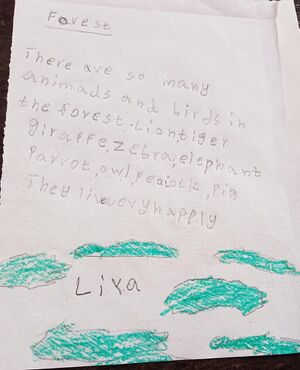 Forest
There are so many
animads and birds in
the forest. Lion,tiger
giraffe,zebra,elephant
Parrot,owl,peacock,Pig
They live very happly
Liya